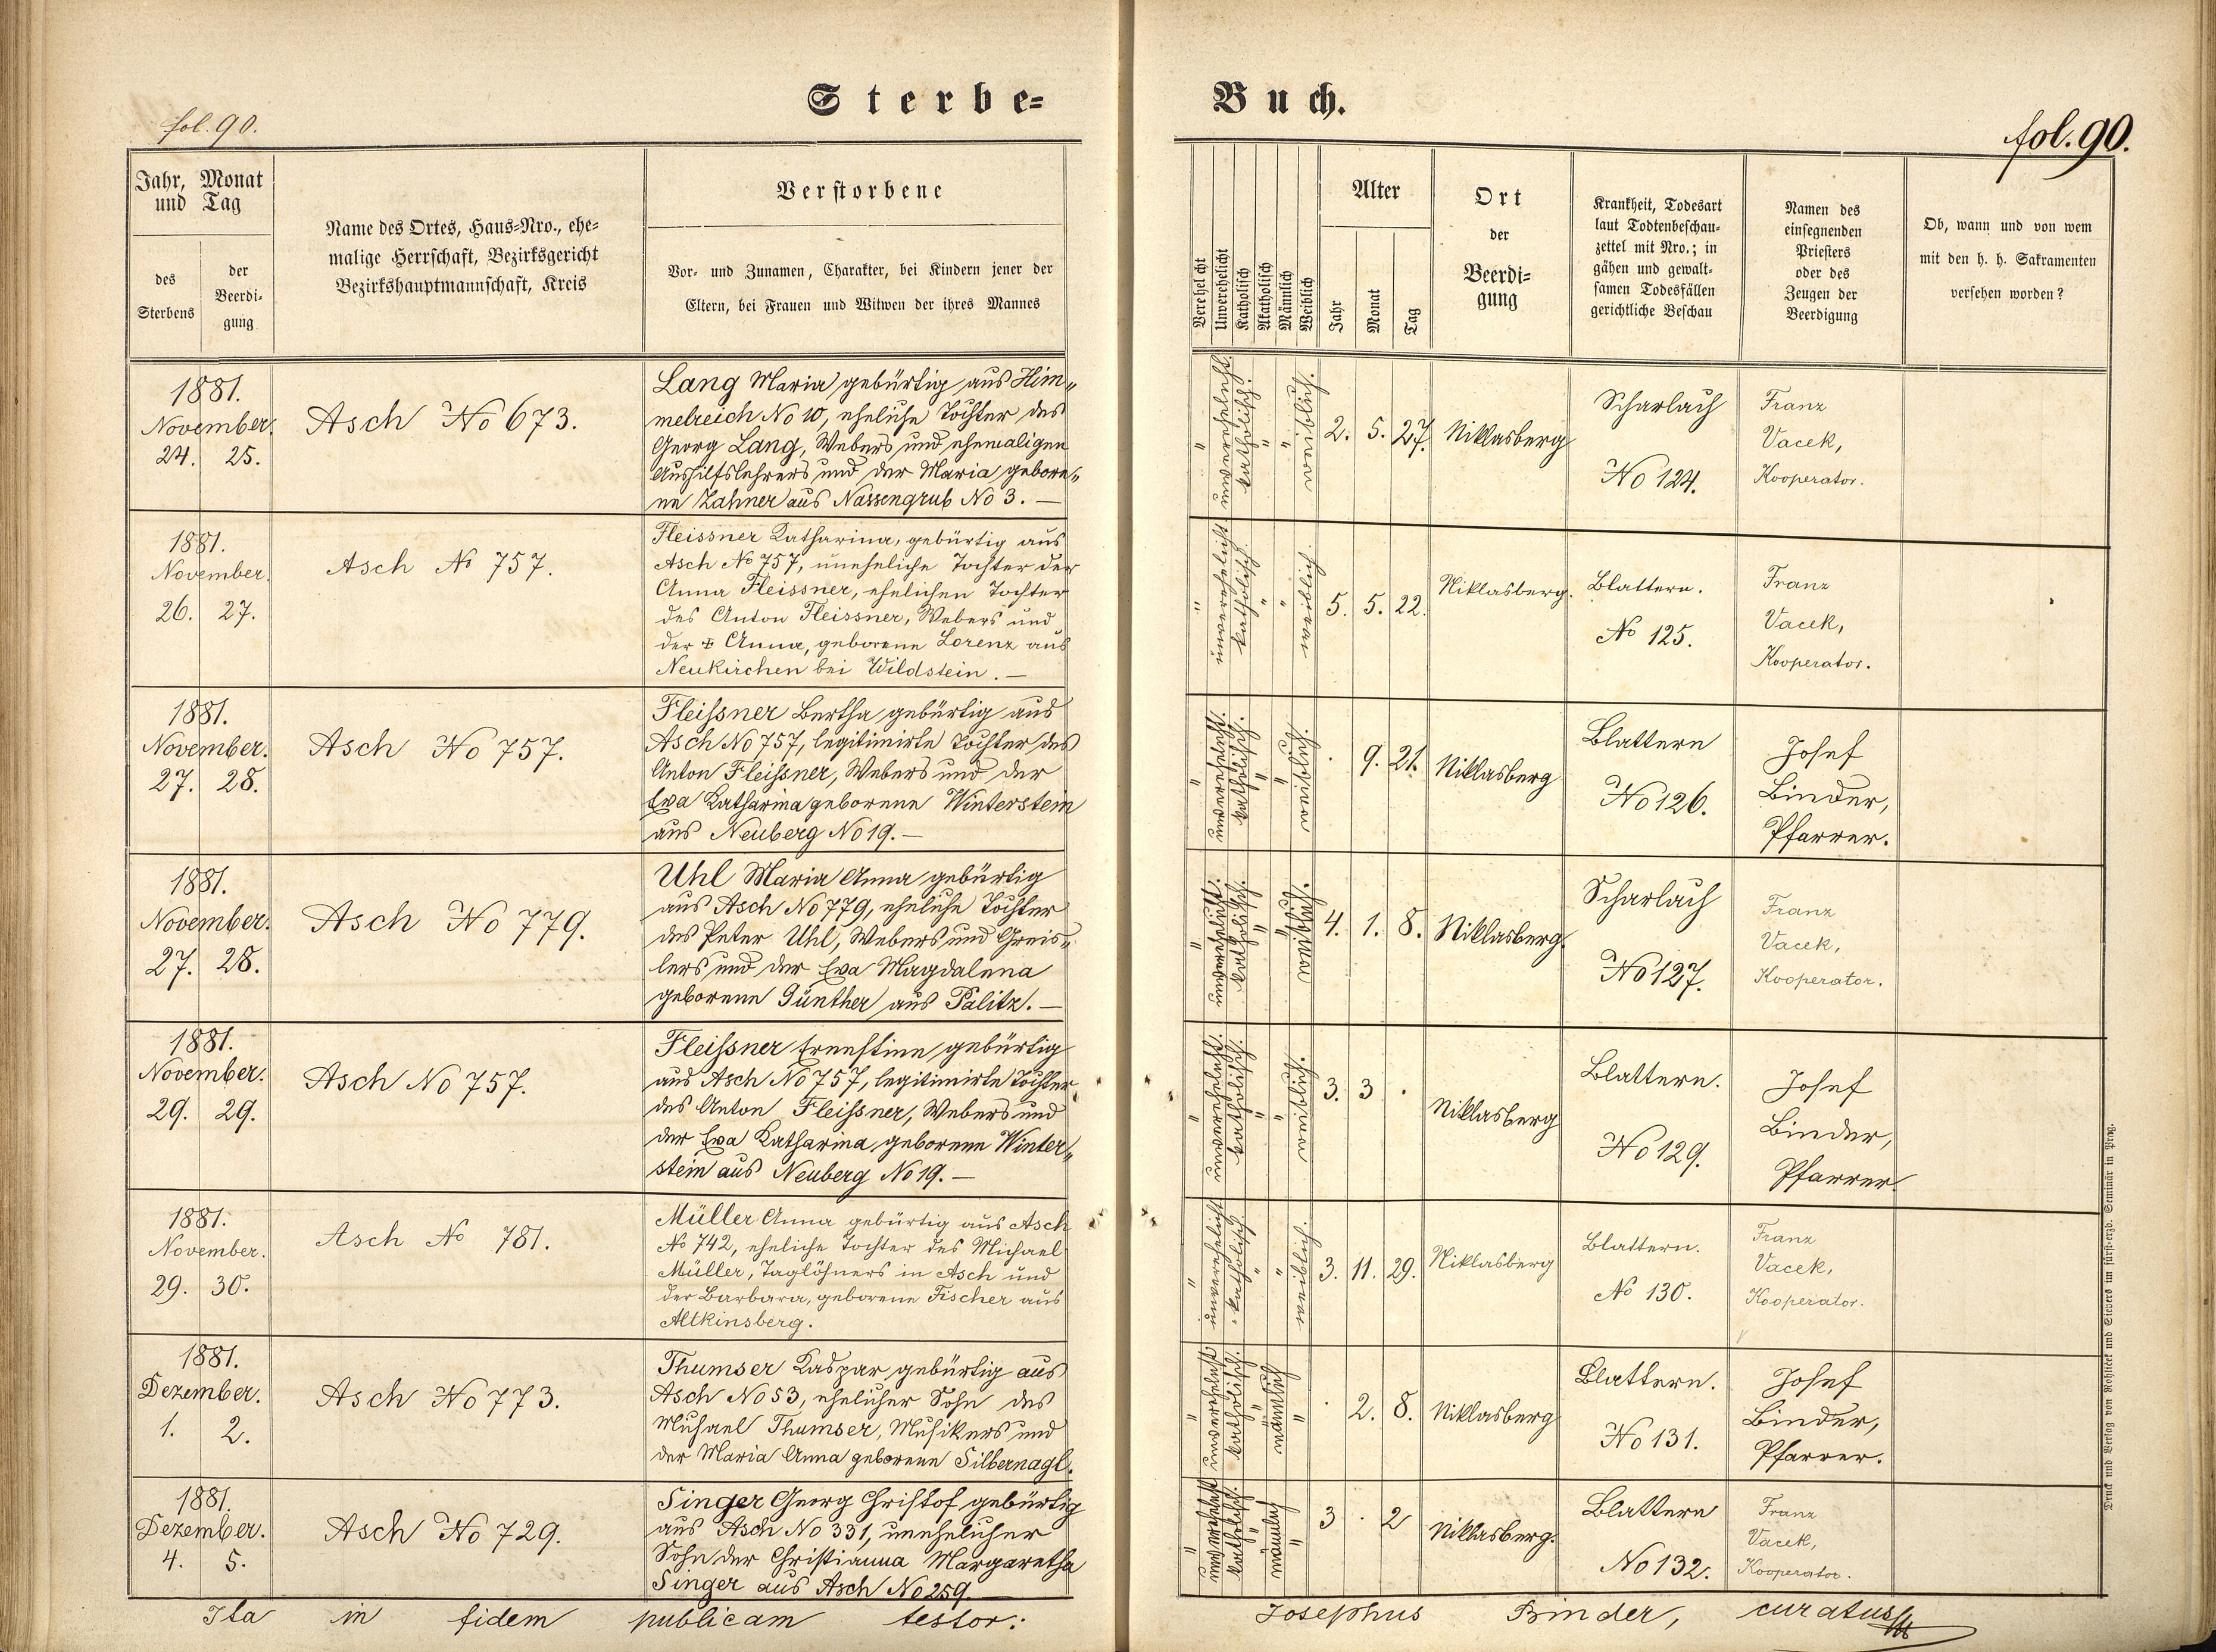 Sterbe=
Buch.
fol. 90.
fol. 90.
Jahr, Monat
und Tag
des
Sterbens
der
Beerdi-
gung
Name des Ortes, Haus=Nro., ehe-
malige Herrschaft, Bezirksgericht
Bezirkshauptmannschaft, Kreis
Verstorbene
Vor- und Zunamen, Charakter, bei Kindern jener der
Eltern, bei Frauen und Witwen der ihres Mannes
Verehelicht
Unverehelicht
Katholisch
Akatholisch
Männlich
Weiblich
Alter
Jahr
Monat
Tag
Ort
der
Beerdi-
gung
Krankheit, Todesart
laut Todtenbeschau-
zettel mit Nro.; in
gähen und gewalt-
samen Todesfällen
gerichtliche Beschau
Namen des
einsegnenden
Priesters
oder des
Zeugen der
Beerdigung
Ob, wann und von wem
mit den h. h. Sakramenten
versehen worden?
1881.
November.
24. 25.
Asch No 673.
Lang Maria gebürtig aus Him„
melreich No 10, eheliche Tochter des
Georg Lang, Webers und ehemaligen
Aushilfslehrers und der Maria gebore„
ne Zahner aus Nassengrub No 3. —
" unverehelicht. katholisch. " " weiblich.
2. 5. 27.
Niklasberg
Scharlach
No 124.
Franz
Vacek,
Kooperator.
1881.
November.
26. 27.
Asch No 757.
Fleissner Katharina, gebürtig aus
Asch No 757, uneheliche Tochter der
Anna Fleissner, ehelichen Tochter
des Anton Fleissner, Webers und
der ‡ Anna, geborene Lorenz aus
Neukirchen bei Wildstein. —
" unverehelicht katholisch " " weiblich
5. 5. 22.
Niklasberg.
Blattern.
No 125.
Franz
Vacek,
Kooperator.
1881.
November.
27. 28.
Asch No 757.
Fleißner Bertha gebürtig aus
Asch No 757, legitimirte Tochter des
Anton Fleißner, Webers und der
Eva Katharina geborene Winterstein
aus Neuberg No 19. —
" unverehelicht. katholisch. " " weiblich.
. 9. 21.
Niklasberg
Blattern
No 126.
Josef
Binder,
Pfarrer.
1881.
November.
27. 28.
Asch No 779.
Uhl Maria Anna gebürtig
aus Asch No 779, eheliche Tochter
des Peter Uhl, Webers und Greis„
lers und der Eva Magdalena
geborene Günther aus Palitz. —
" unverehelicht. katholisch. " " weiblich.
4. 1. 8.
Niklasberg.
Scharlach
No 127.
Franz
Vacek,
Kooperator.
1881.
November.
29. 29.
Asch No 757.
Fleißner Ernestine gebürtig
aus Asch No 757, legitimirte Tochter
des Anton Fleißner, Webers und
der Eva Katharina geborene Winter„
stein aus Neuberg No 19. —
" unverehelicht. katholisch. " " weiblich.
3. 3 .
Niklasberg
Blattern.
No 129.
Josef
Binder,
Pfarrer.
1881.
November.
29. 30.
Asch No 781.
Müller Anna gebürtig aus Asch
No 742, eheliche Tochter des Michael
Müller, Taglöhners in Asch und
der Barbara, geborene Fischer aus
Altkinsberg.
" unverehelicht katholisch " " weiblich.
3. 11. 29.
Niklasberg
Blattern.
No 130.
Franz
Vacek,
Kooperator.
1881.
Dezember.
1. 2.
Asch No 773.
Thumser Kaspar gebürtig aus
Asch No 53, ehelicher Sohn des
Michael Thumser, Musikers und
der Maria Anna geborene Silbernagl.
" unverehelicht katholisch. " männlich "
. 2. 8.
Niklasberg
Blattern.
No 131.
Josef
Binder,
Pfarrer.
1881.
Dezember.
4. 5.
Asch No 729.
Singer Georg Christof gebürtig
aus Asch No 331, unehelicher
Sohn der Christianna Margaretha
Singer aus Asch No 259.
" unverehelicht katholisch. " männlich "
3 . 2
Niklasberg.
Blattern
No 132.
Franz
Vacek,
Kooperator.
Ita in fidem publicam testor:
Josephus Binder, curatus
Druck und Verlag von Rohliček und Sievers im fürst-erzb. Seminär in Prag.